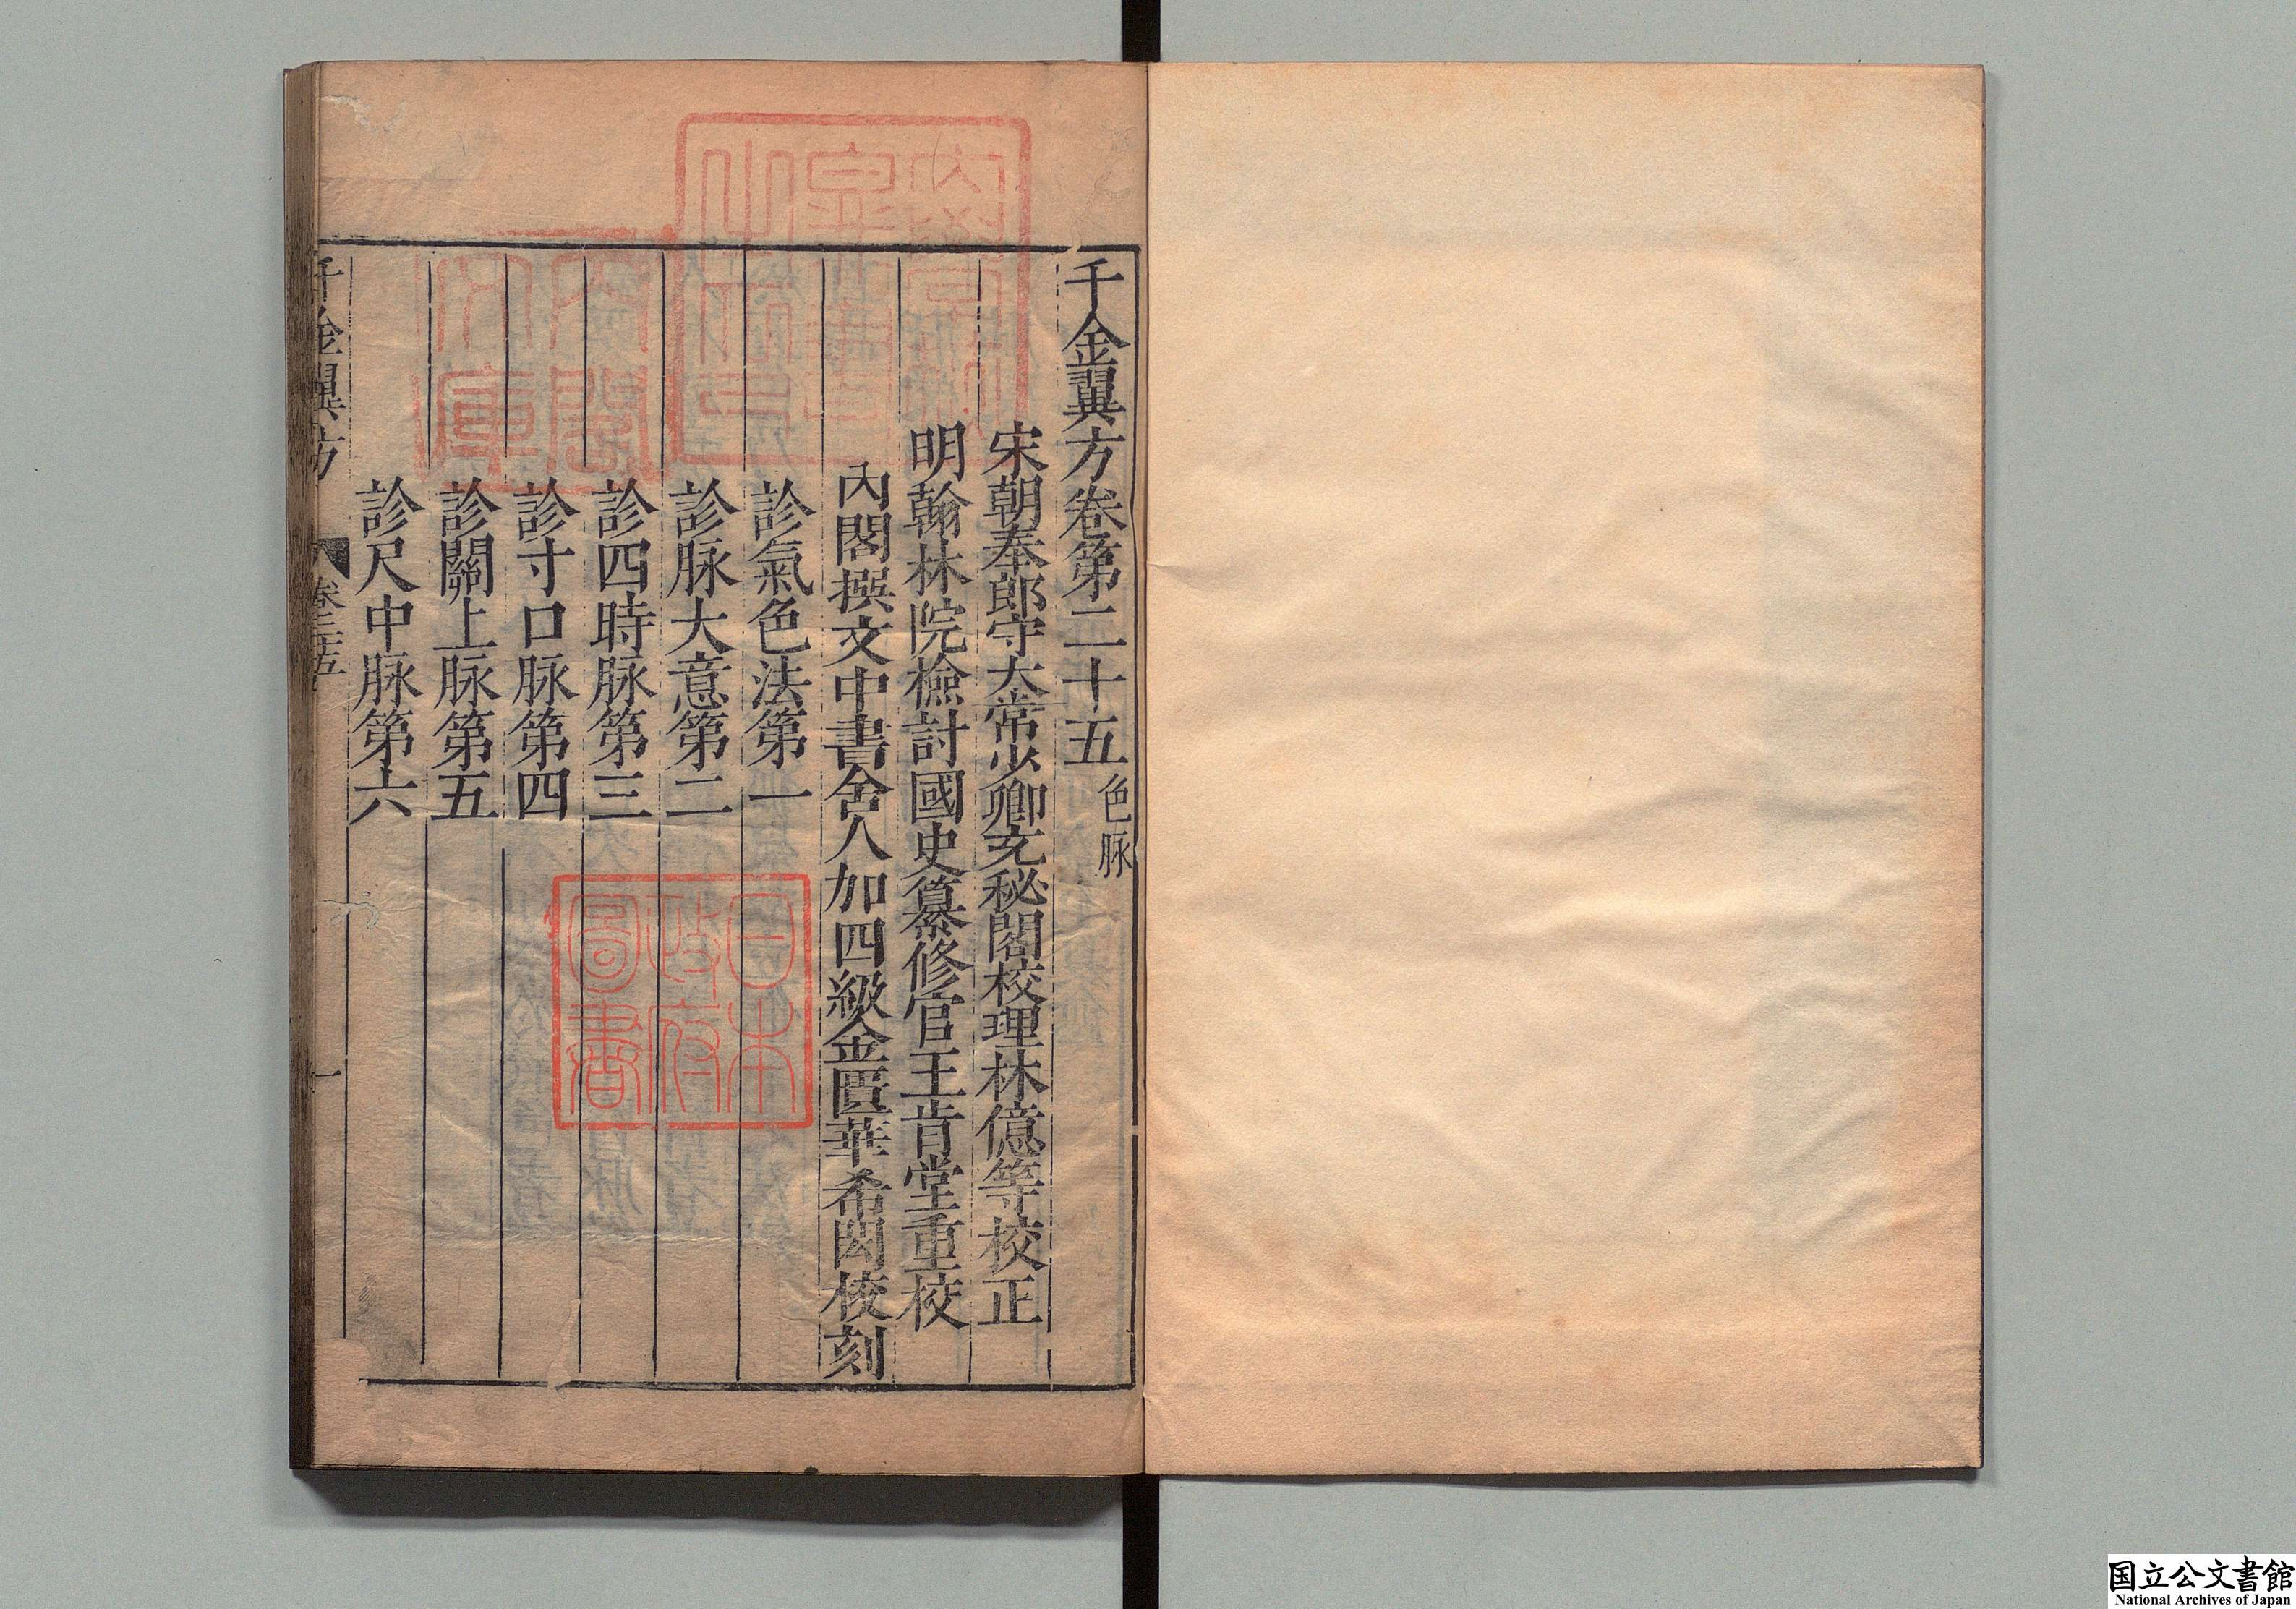 千金翼方卷第二十五 色脉
宋朝奉郎守太常少卿充秘閣校理林億等校正
明翰林院檢討國史纂修官王肯堂重校
內閣撰文中書舍人加四級金匱華希閎校刻
診氣色法第一
診脉大意第二
診四時脉第三
診寸口脉第四
診關上脉第五
診尺中脉第六
千金翼方 卷二十五 一
日本
政府
圖書
內閣
文庫
国立公文書館
National Archives of Japan